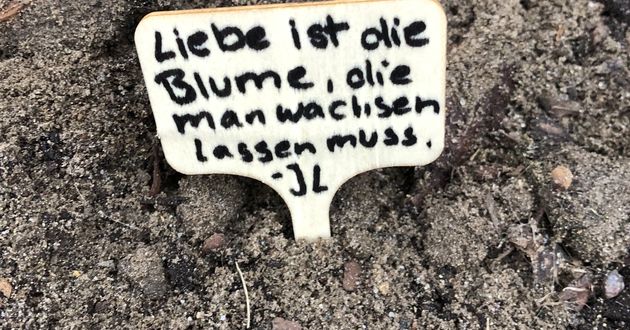 Liebe ist die
Blume, die
man wachsen
lassen muss.
-JL